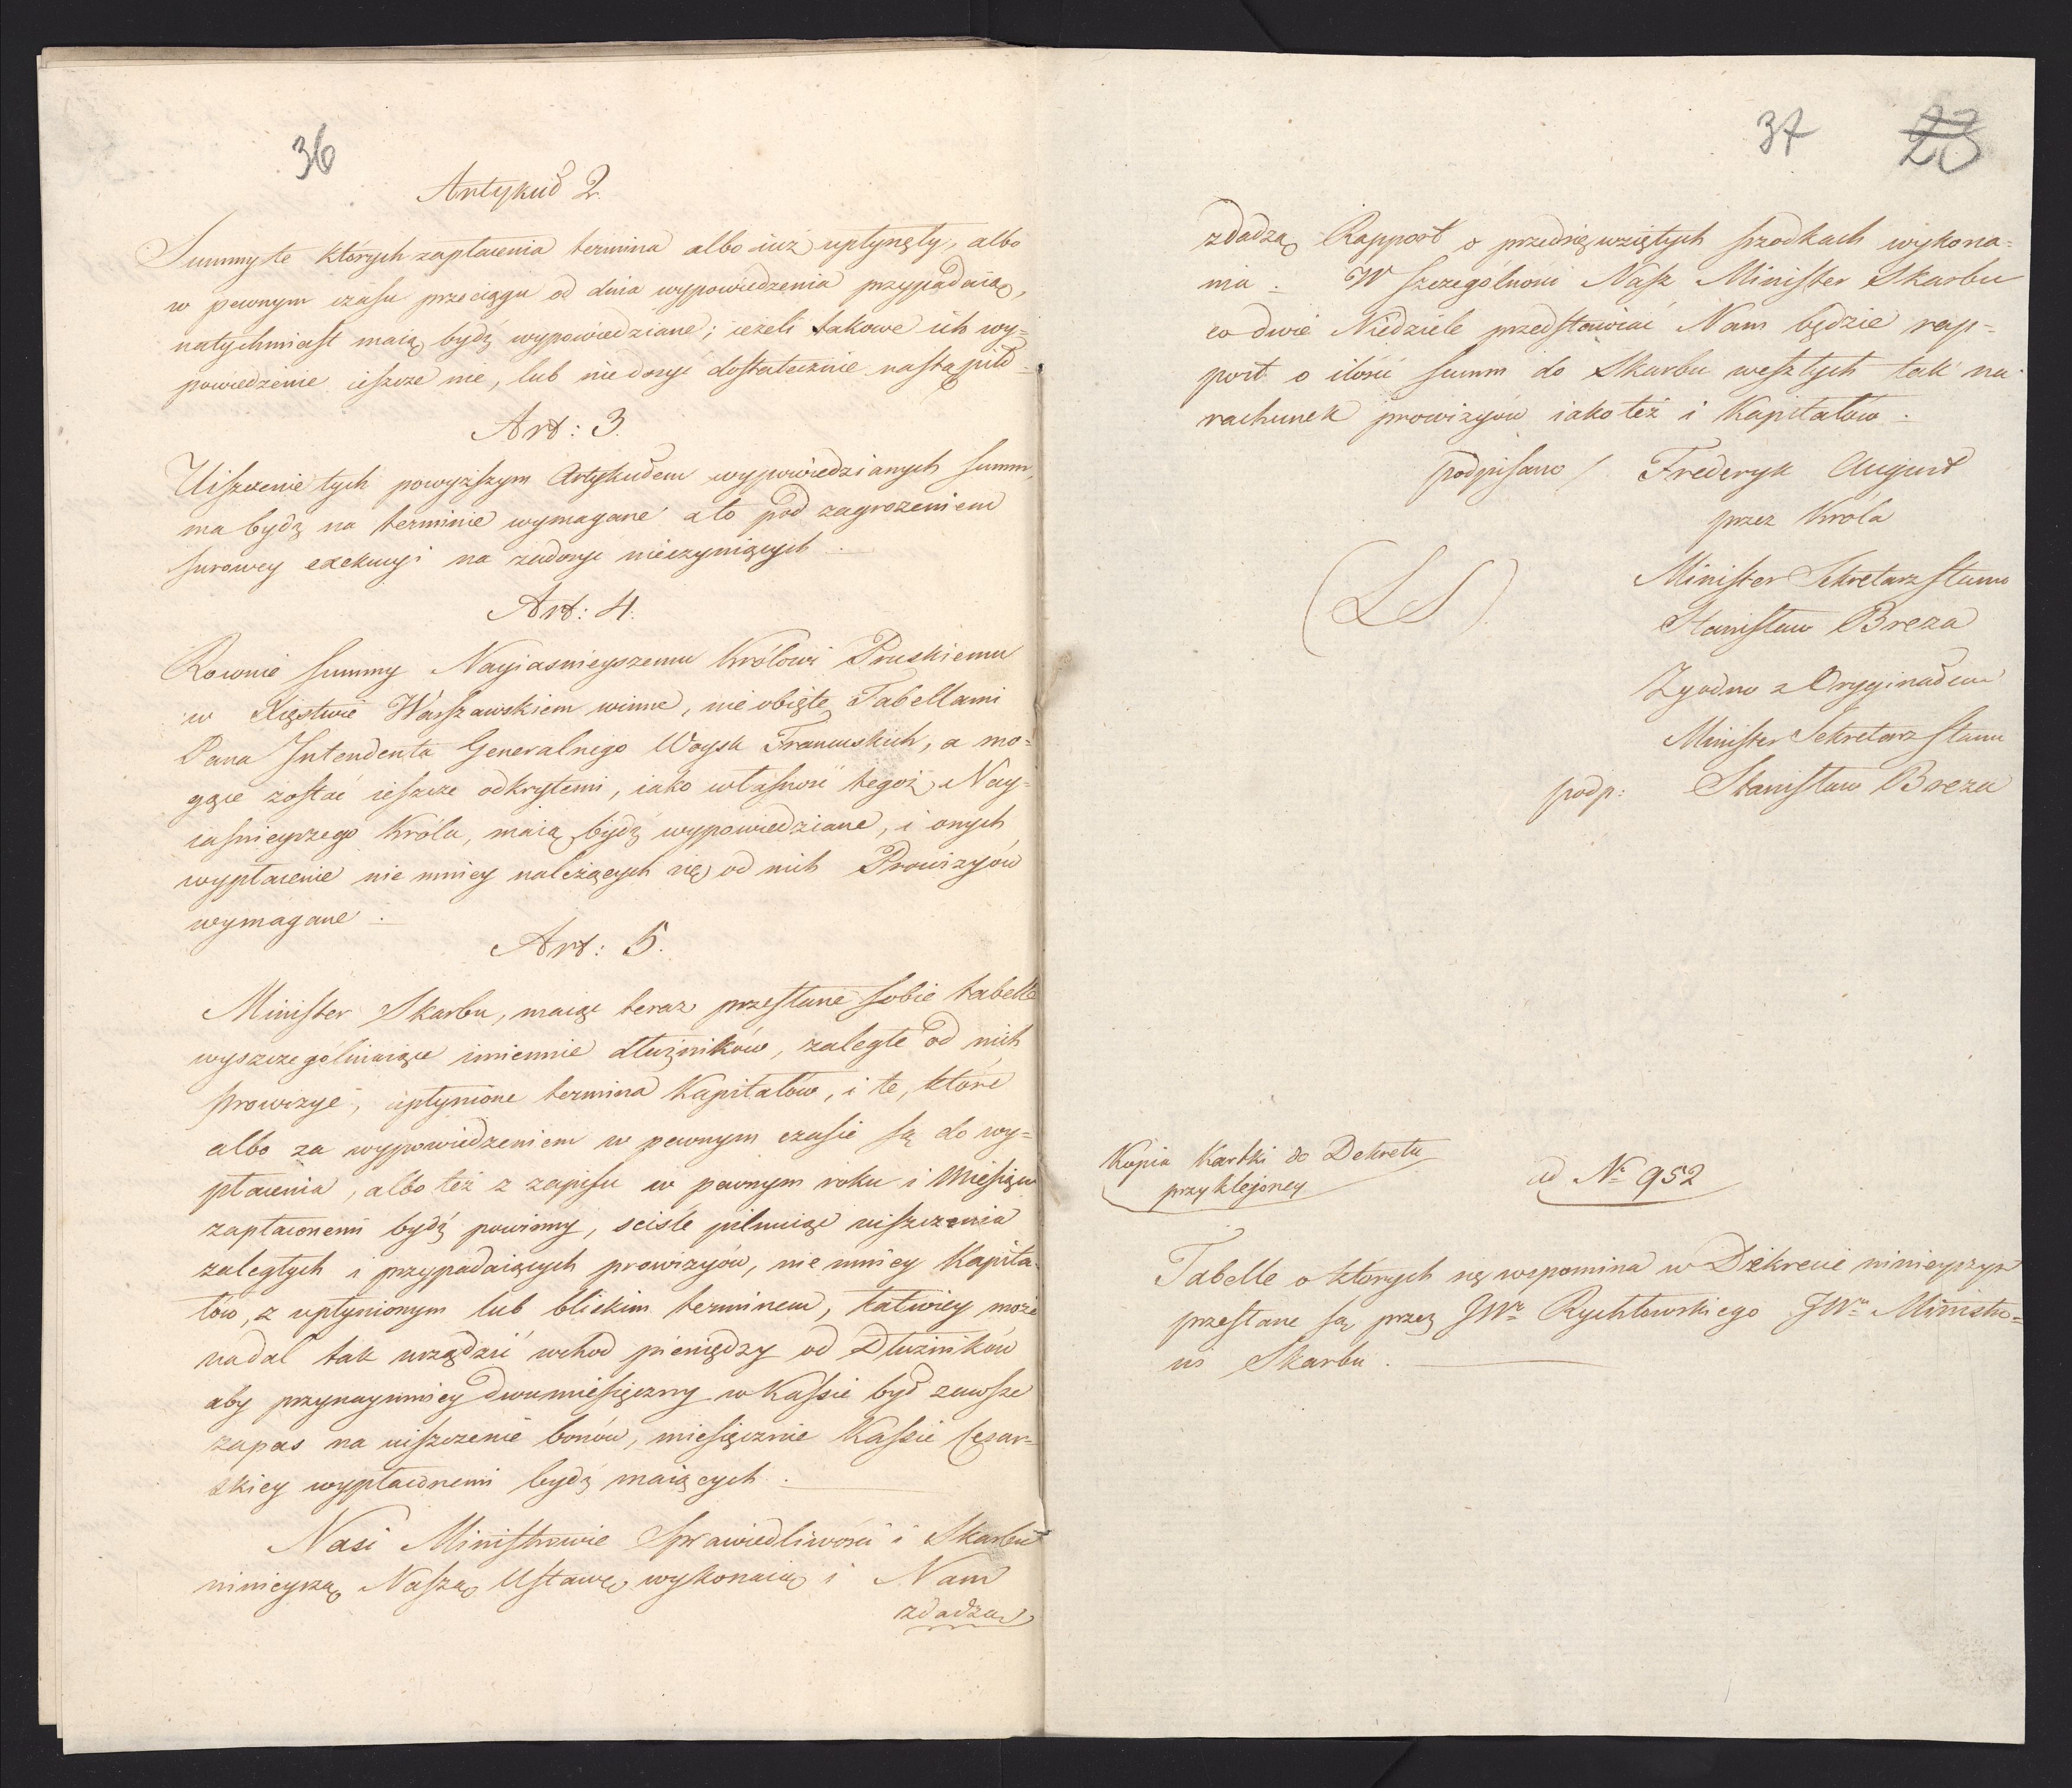 36
Artykuł 2.
Summy te których zapłacenia termina albo iuż upłynęły, albo
w pewnym czasu przeciągu od dnia wypowiedzenia przypadaią,
natychmiast maią bydź wypowiedziane; ieżeli takowe ich wy=
powiedzenie ieszcze nie, lub nie dosyć dostatecznie nastąpiło.
Art: 3.
Uiszczenie tych powyższym Artykułem wypowiedzianych summ,
ma bydź na terminie wymagane a to pod zagrożeniem
surowey exekucyi na zadosyć nieczyniących.
Art: 4.
Rownie summy Nayiasnieyszemu Królowi Pruskiemu
w Xięstwie Warszawskiem winne, nie obięte Tabellami
Pana Intendenta Generalnego Woysk Francuskich, a mo=
gące zostać ieszcze odkrytemi, iako własność tegoż Nay=
iasnieyszego Króla, maią bydź wypowiedziane, i onych
wypłacenie nie mniey należących się od nich Prowizyów
wymagane.
Art: 5.
Minister Skarbu, maiąc teraz przesłane sobie tabelle
wyszczególniaiące imiennie dłużników, zaległe od nich
prowizye, upłynione termina Kapitałów, i te, które
albo za wypowiedzeniem w pewnym czasie są do wy=
płacenia, albo też z zapisu w pewnym roku i Miesiącu
zapłaconemi bydź powinny, sciśle pilnuiąc uiszczenia
zaległych i przypadaiących prowizyów, nie mniey Kapita=
łów, z upłynionym lub bliskim terminem, łatwiey może
nadal tak urządzić wchod pieniędzy od Dłużników
aby przynaymniey dwumiesięczny w Kassie był zawsze
zapas na uiszczenie bonów, miesięcznie Kassie Cesar=
skiey wypłaconemi bydź maiących.
Nasi Ministrowie Sprawiedliwości i Skarbu
ninieyszą Naszą Ustawę wykonaią i Nam
zdadzą
37 23
zdadzą Rapport o przedsięwziętych srzodkach wykona=
nia. W szczególnosci Nasz Minister Skarbu
co dwie Niedziele przedstawiać Nam będzie rap=
port o ilości summ do Skarbu weszłych tak na
rachunek prowizyów iako też i Kapitałów.
podpisano / Frederyk August
przez Króla
(LS) Minister Sekretarz Stanu
Stanisław Breza
Zgodno z Oryginałem
Minister Sekretarz Stanu
podp: Stanisław Breza
Kopia Kartki do Dekretu
przyklejoney
ad No 952
Tabelle o których się wspomina w Dekrecie ninieyszym
przesłane są przez JWo Rychłowskiego JWu Ministro=
wi Skarbu.